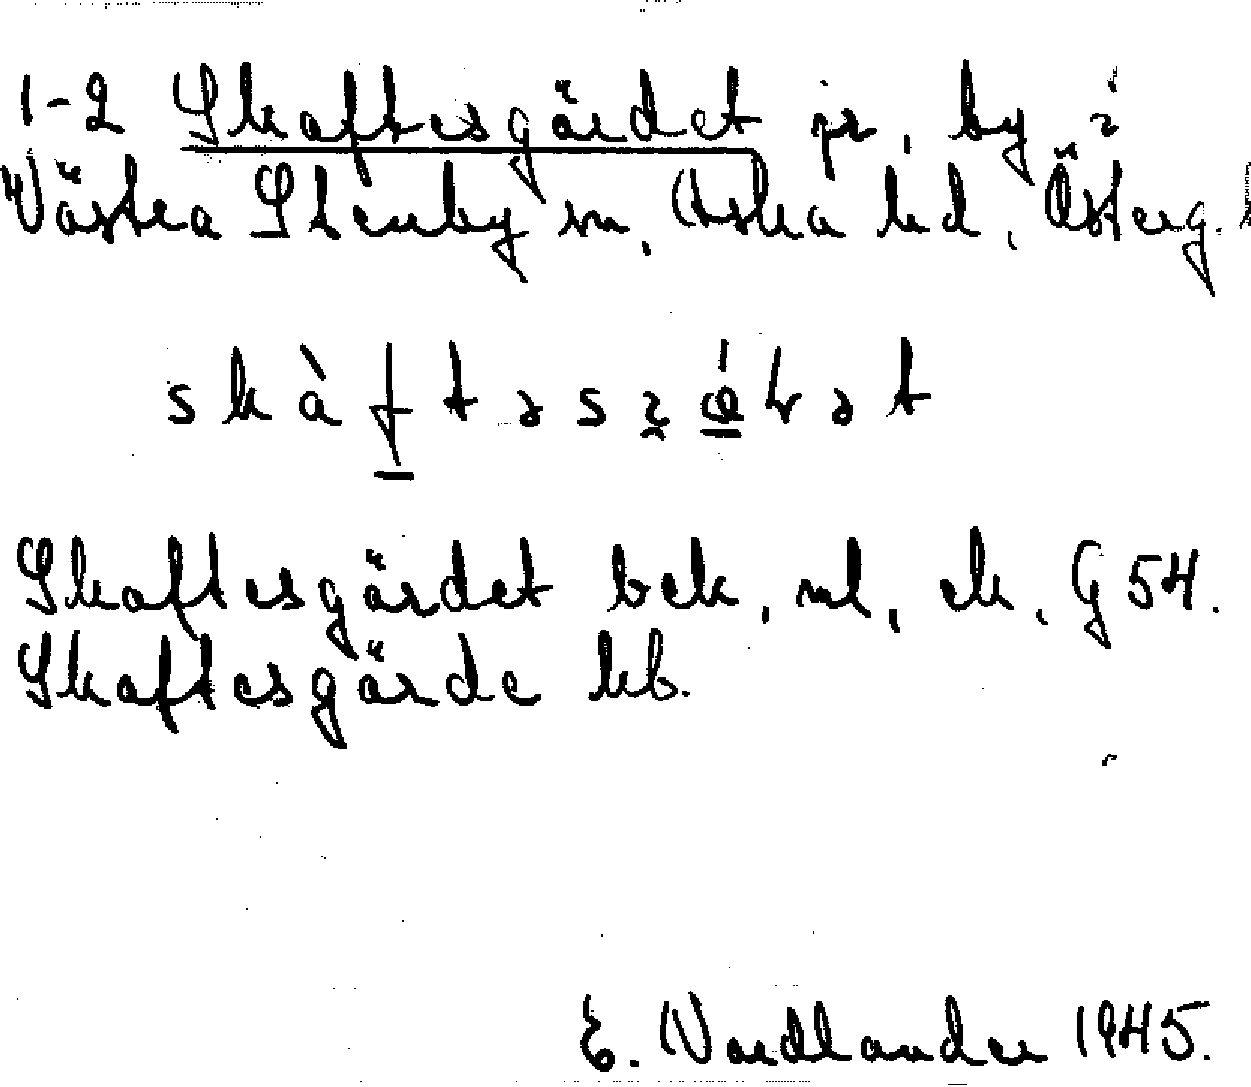 1-2 Skaftesgärdet jr, by i
Västra Stenby sn, Aska hd, Österg.
Skaftesgärdet bek, ml, ek, G 54.
Skaftesgärde kb.
E. Nordlander 1945.